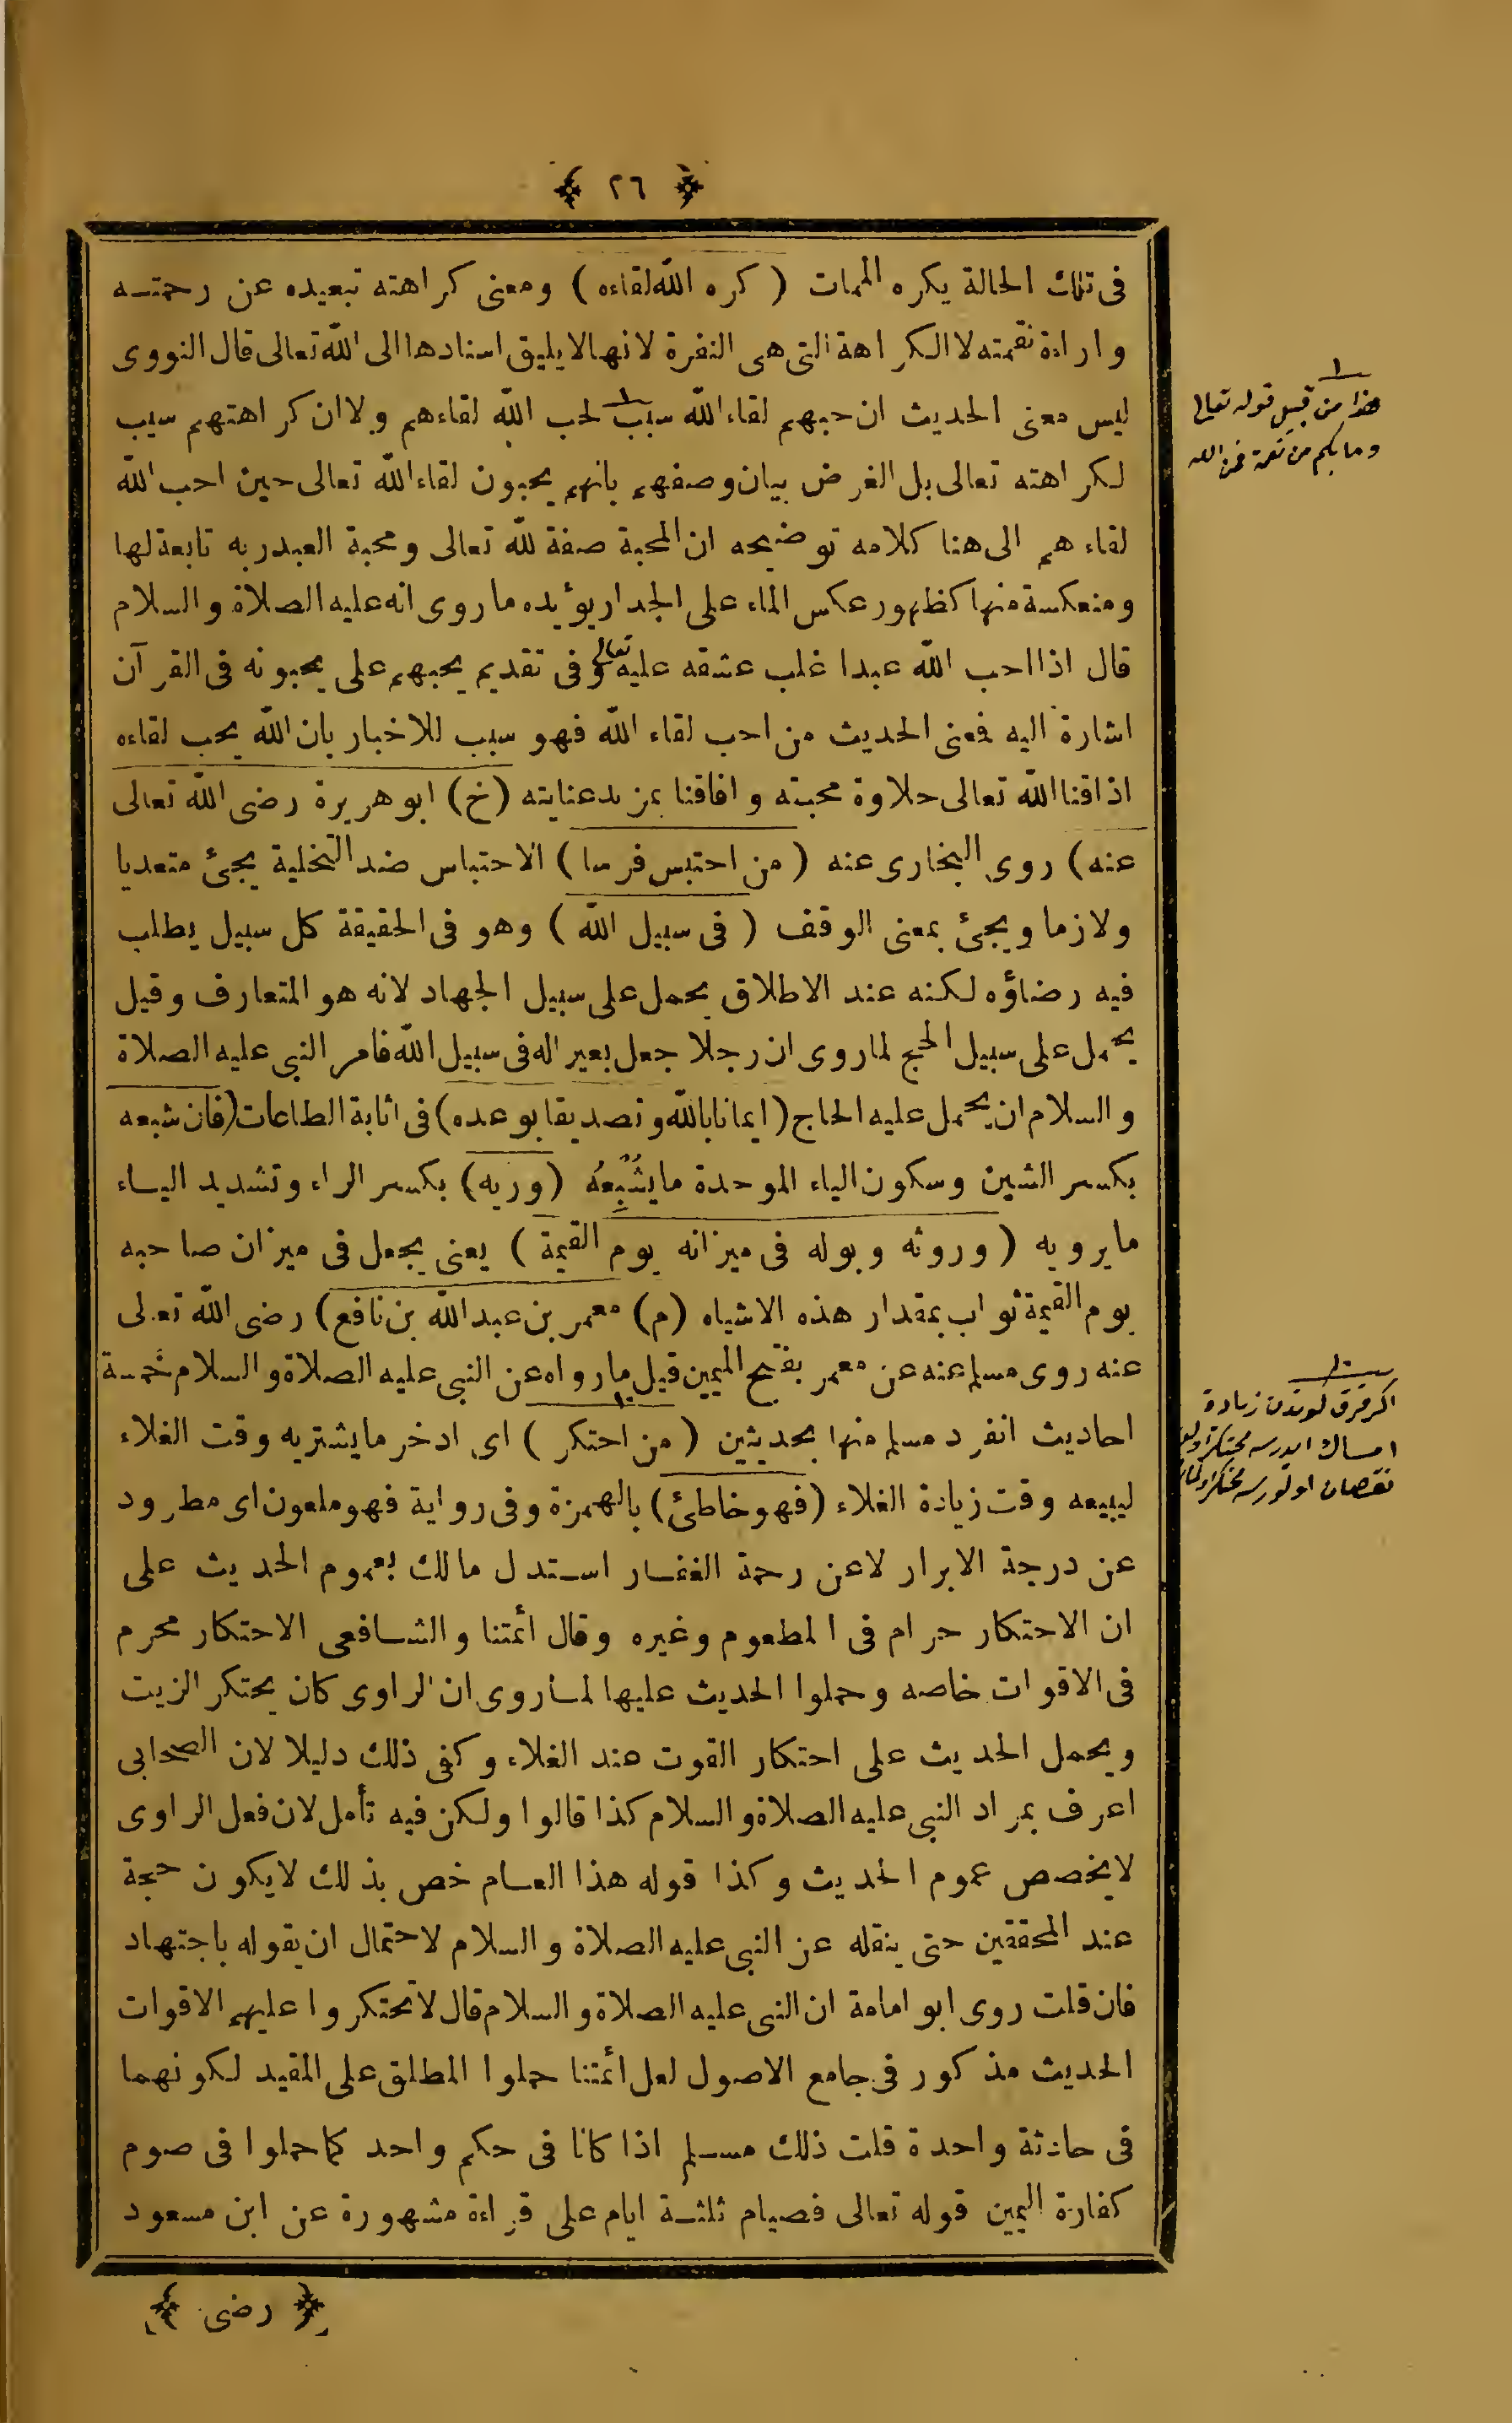 ﴿ ٢٦ ﴾
فى تلك الحالة يكره الممات ( كره الله لقاءه ) ومعنى كراهته تبعيده عن رحمته
وارادة نقمته لا الكراهة التى هى النفرة لانها لا يليق اسنادها الى الله تعالى قال النووى
ليس معنى الحديث ان حبهم لقاء الله سبب لحب الله لقاءهم ولا ان كراهتهم سبب
لكراهته تعالى بل الغرض بيان وصفهم بانهم يحبون لقاء الله تعالى حين احب الله
لقاءهم الى هنا كلامه توضيحه ان المحبة صفة لله تعالى ومحبة العبد ربه تابعة لها
ومنعكسة منها كظهور عكس الماء على الجدار يؤيده ما روى انه عليه الصلاة والسلام
قال اذا احب الله عبدا غلب عشقه عليه تعالى وفى تقديم يحبهم على يحبونه فى القرآن
اشارة اليه فمعنى الحديث من احب لقاء الله فهو سبب للاخبار بان الله يحب لقاءه
اذاقنا الله تعالى حلاوة محبته وافاقنا بمزيد عنايته (خ) ابو هريرة رضى الله تعالى
عنه) روى البخارى عنه ( من احتبس فرسا ) الاحتباس ضد التخلية يجئ متعديا
ولازما ويجئ بمعنى الوقف ( فى سبيل الله ) وهو فى الحقيقة كل سبيل يطلب
فيه رضاؤه لكنه عند الاطلاق يحمل على سبيل الجهاد لانه هو المتعارف وقيل
يحمل على سبيل الحج لما روى ان رجلا جعل بعيرا له فى سبيل الله فامر النبى عليه الصلاة
والسلام ان يحمل عليه الحاج (ايمانا بالله وتصديقا بوعده) فى اثابة الطاعات (فان شبعه
بكسر الشين وسكون الباء الموحدة ما يشبعه (وريه) بكسر الراء وتشديد الياء
ما يرويه ( وروثه وبوله فى ميزانه يوم القيمة ) يعنى يجعل فى ميزان صاحبه
يوم القيمة ثواب بمقدار هذه الاشياء (م) معمر بن عبد الله بن نافع) رضى الله تعالى
عنه روى مسلم عنه عن معمر بفتح الميمين قيل ما رواه عن النبى عليه الصلاة والسلام خمسة
احاديث انفرد مسلم منها بحديثين ( من احتكر ) اى ادخر ما يشتريه وقت الغلاء
ليبيعه وقت زيادة الغلاء (فهو خاطئ) بالهمزة وفى رواية فهو ملعون اى مطرود
عن درجة الابرار لا عن رحمة الغفار استدل مالك بعموم الحديث على
ان الاحتكار حرام فى المطعوم وغيره وقال ائمتنا والشافعى الاحتكار محرم
فى الاقوات خاصه وحملوا الحديث عليها لما روى ان الراوى كان يحتكر الزيت
ويحمل الحديث على احتكار القوت عند الغلاء وكفى ذلك دليلا لان الصحابى
اعرف بمراد النبى عليه الصلاة والسلام كذا قالوا ولكن فيه تأمل لان فعل الراوى
لا يخصص عموم الحديث وكذا قوله هذا العام خص بذلك لا يكون حجة
عند المحققين حتى ينقله عن النبى عليه الصلاة والسلام لاحتمال ان يقوله باجتهاد
فان قلت روى ابو امامة ان النبى عليه الصلاة والسلام قال لا تحتكروا عليهم الاقوات
الحديث مذكور فى جامع الاصول لعل ائمتنا حملوا المطلق على المقيد لكونهما
فى حادثة واحدة قلت ذلك مسلم اذا كانا فى حكم واحد كما حملوا فى صوم
كفارة اليمين قوله تعالى فصيام ثلثة ايام على قراءة مشهورة عن ابن مسعود
﴿ رضى ﴾
هذا من قبيل قوله تعالى
وما بكم من نعمة فمن الله
زياده
امساك ايدرسه
نقصان اولورسه